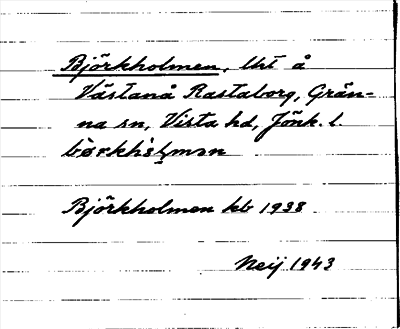 Björkholmen, lht å
Västanå Rastaborg, Grän-
na sn, Vista hd, Jönk. l.
Björkholmen kb 1938
Neij 1943